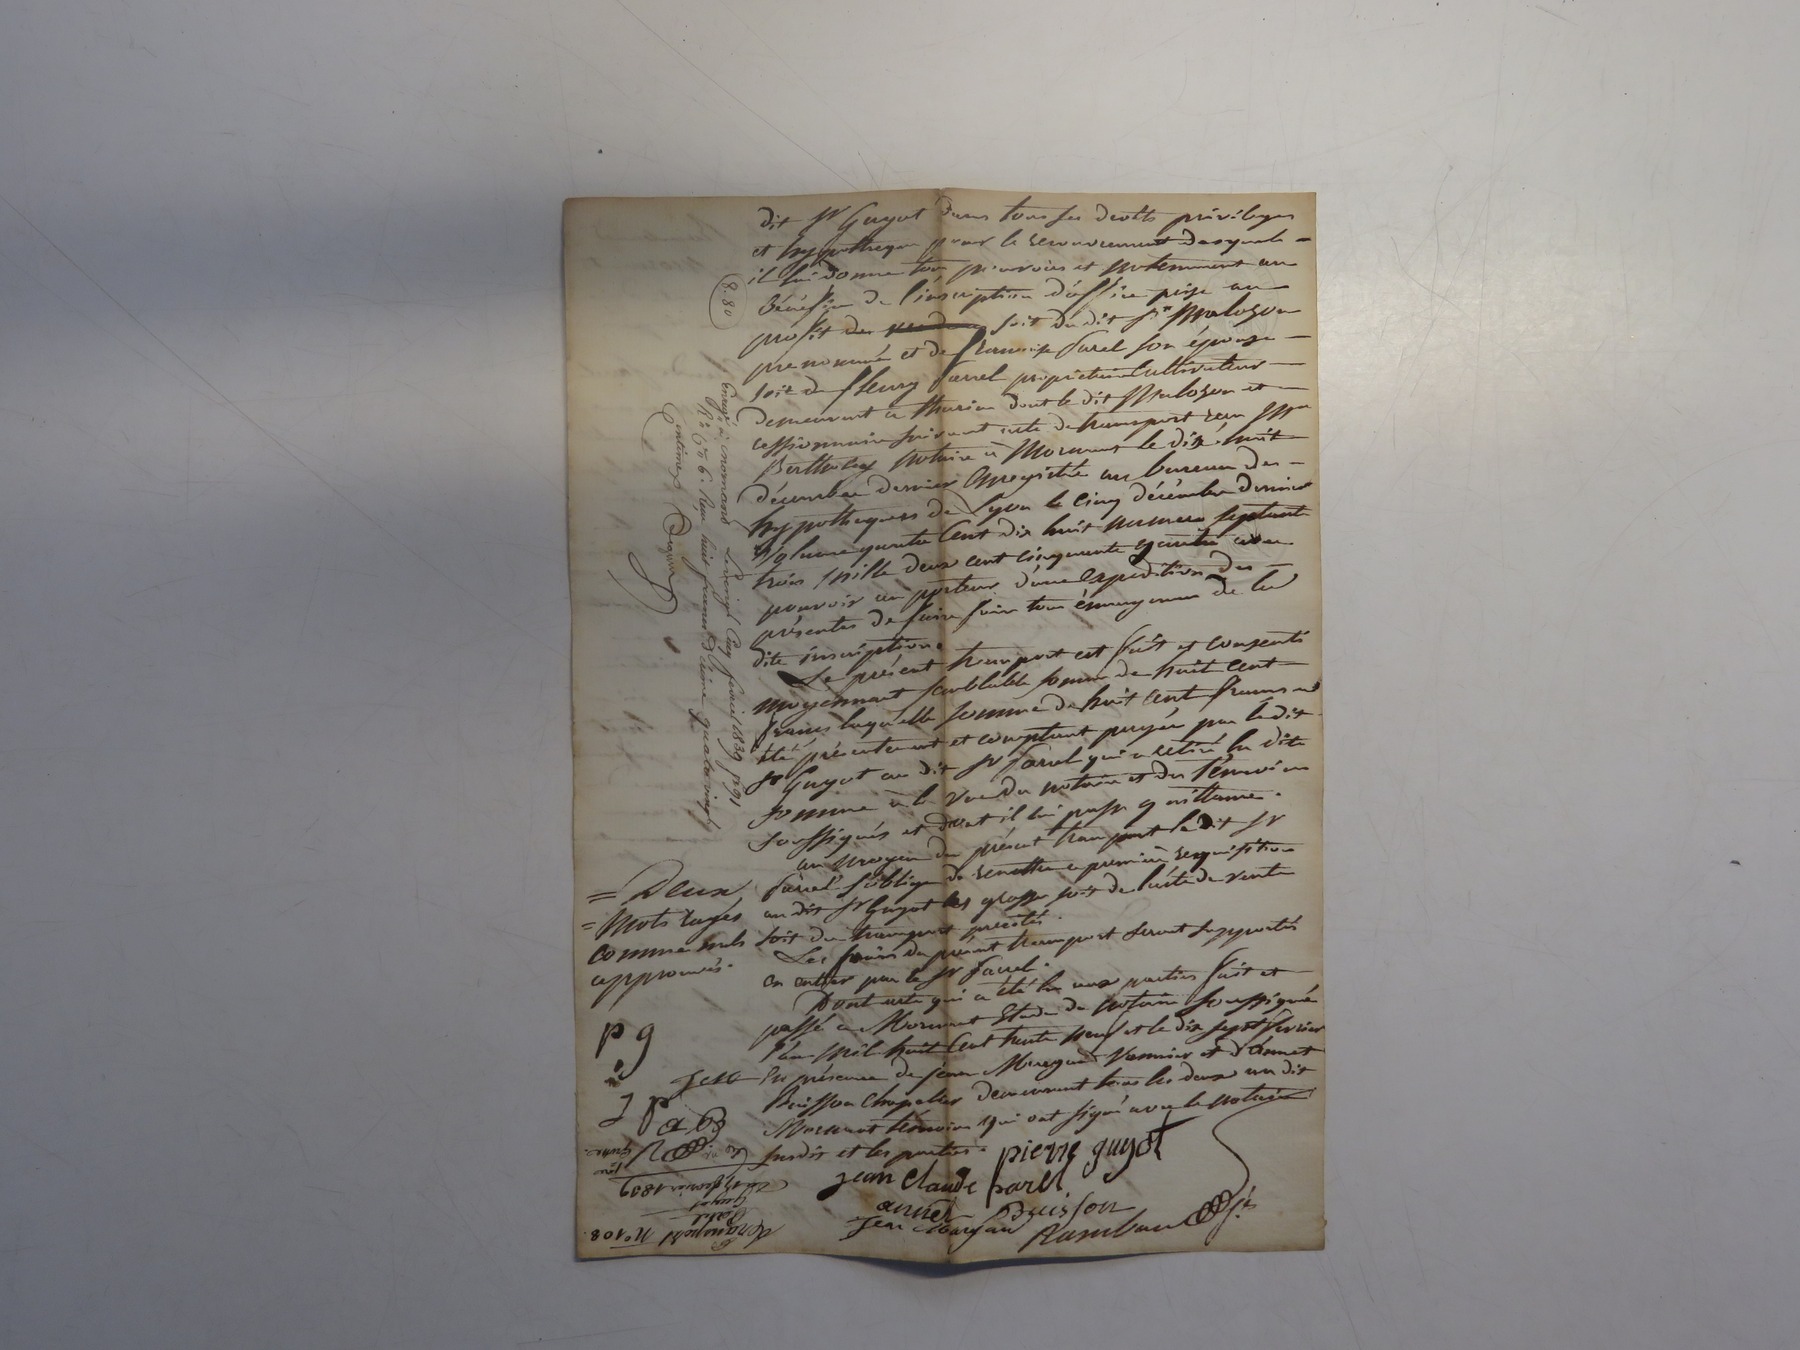 dit Sr Guyot dans tous ses droits privileges
et hypotheques pour le recouvrement desquels
il lui donne tous pouvoirs et notemment au
bénéfice de l'inscription d'office prise au
profit des soit du dit Sr
prenommé et de françoise farel son épouse
soit de fleury farel propriétaire cultivateur
demeurant a thurins dont le dit est
cessionnaire suivant acte de transport reçu Me
notaire à Mornant le dix huit
décembre dernier enregistré au bureau des
hypotheques de Lyon le cinq décembre dernier
volume quatre cent dix huit numero septante
trois mille deux cent cinquante quatre avec
pouvoir au porteur d'une expedition des
présentes de faire faire tous émargemens de la
dite inscription.
Le présent transport est fait et consenti
moyennant semblable somme de huit cent
francs laquelle somme de huit cent francs a
été présentement et comptant payée par le dit
Sr Guyot au dit Sr farel qui a retiré la dite
somme à la vue du notaire et des témoins
soussignés et dont il lui passe quittance.
au moyen du présent transport le dit Sr
farel s'oblige de remettre a premiere requisition
au dit Sr Guyot les grosses soit de l'acte de vente
soit du transport précité.
Les frais du présent transport seront supportés
en entier par le Sr farel.
Dont acte qui a été lu aux parties fait et
passé a Mornant Etude du notaire soussigné
l'an mil huit cent trente neuf et le dix sept fevrier
En présence de jean et d'annet
Buisson chapelier demeurant tous les deux au dit
Mornant témoins qui ont signé avec le notaire
susdit et les parties.
pierre guyot
jean claude farel
annet Buisson
jean
8.80
Enregé à mornand Le vingt cinq fevrier 1839 fo 91
Ro Co 6. Reçu huit francs décime quatre vingt
centimes
= Deux
= Mots rayés
comme nuls
approuvés.
p g
J C f
J P
a B
No 108.
17 fevrier 1839
Transport
farel
Guyot